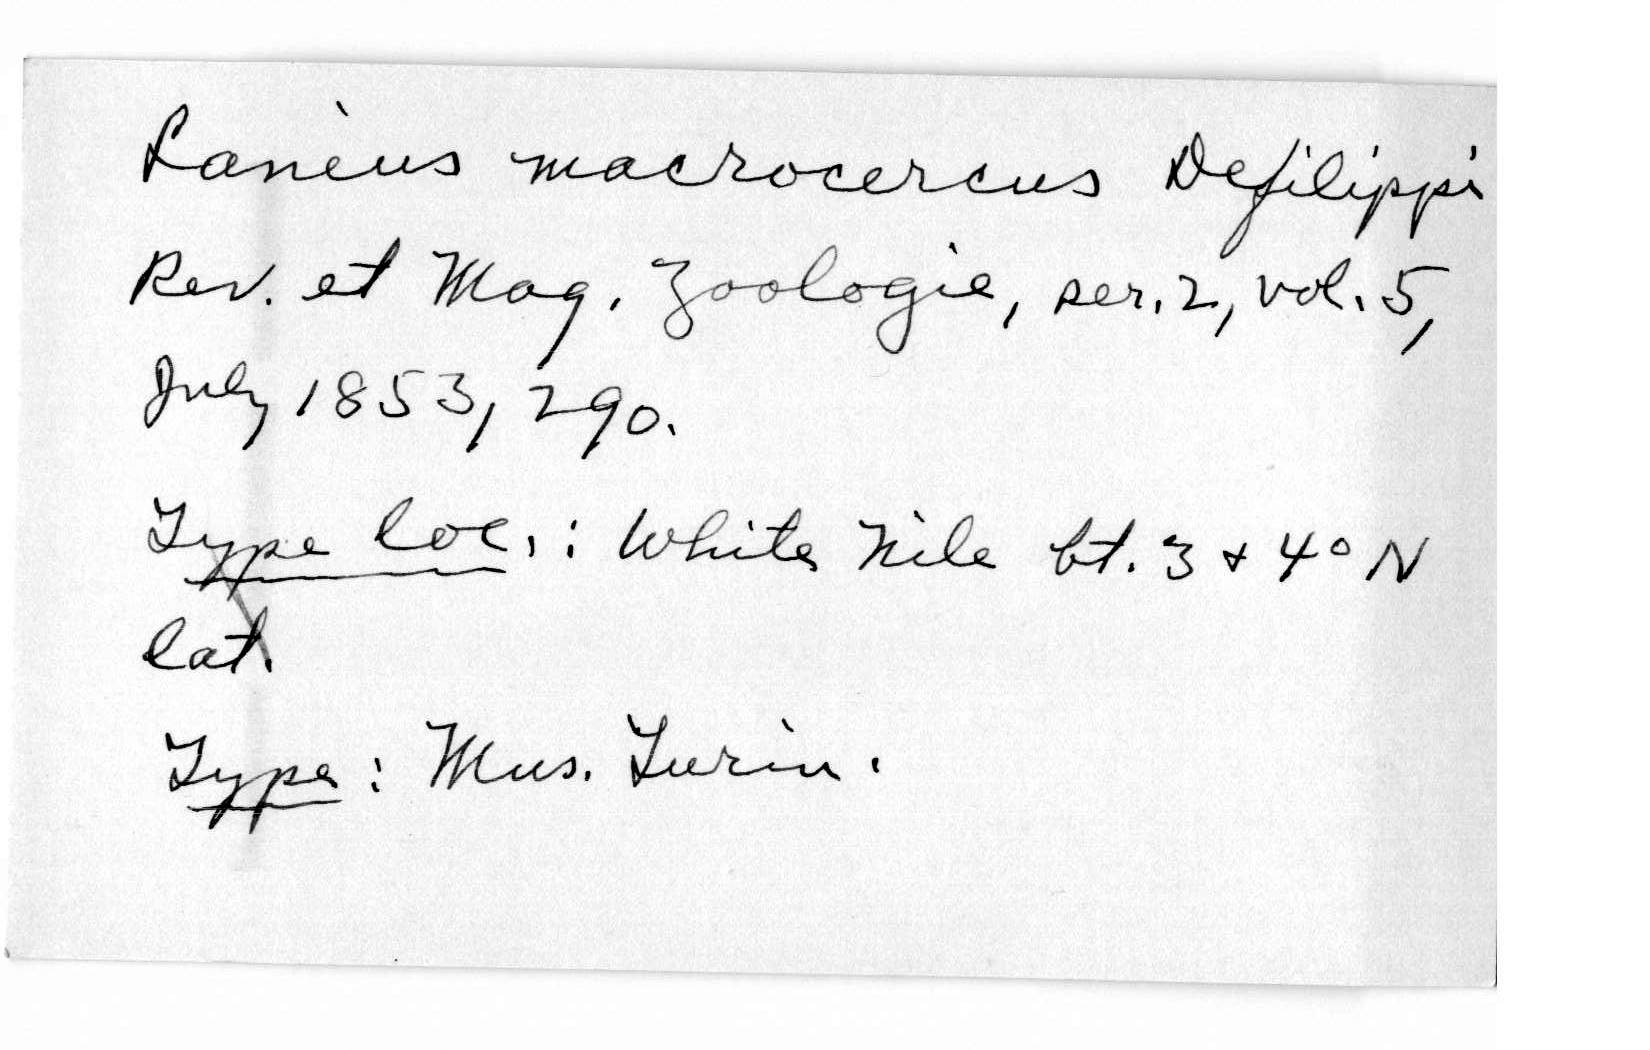 Lanius macrocercus Defilippi
Rev. et Mag. Zoologie, ser. 2, vol. 5,
July 1853, 290.
Type loc.: White Nile bt. 3 + 4° N
lat.
Type: Mus. Turin.